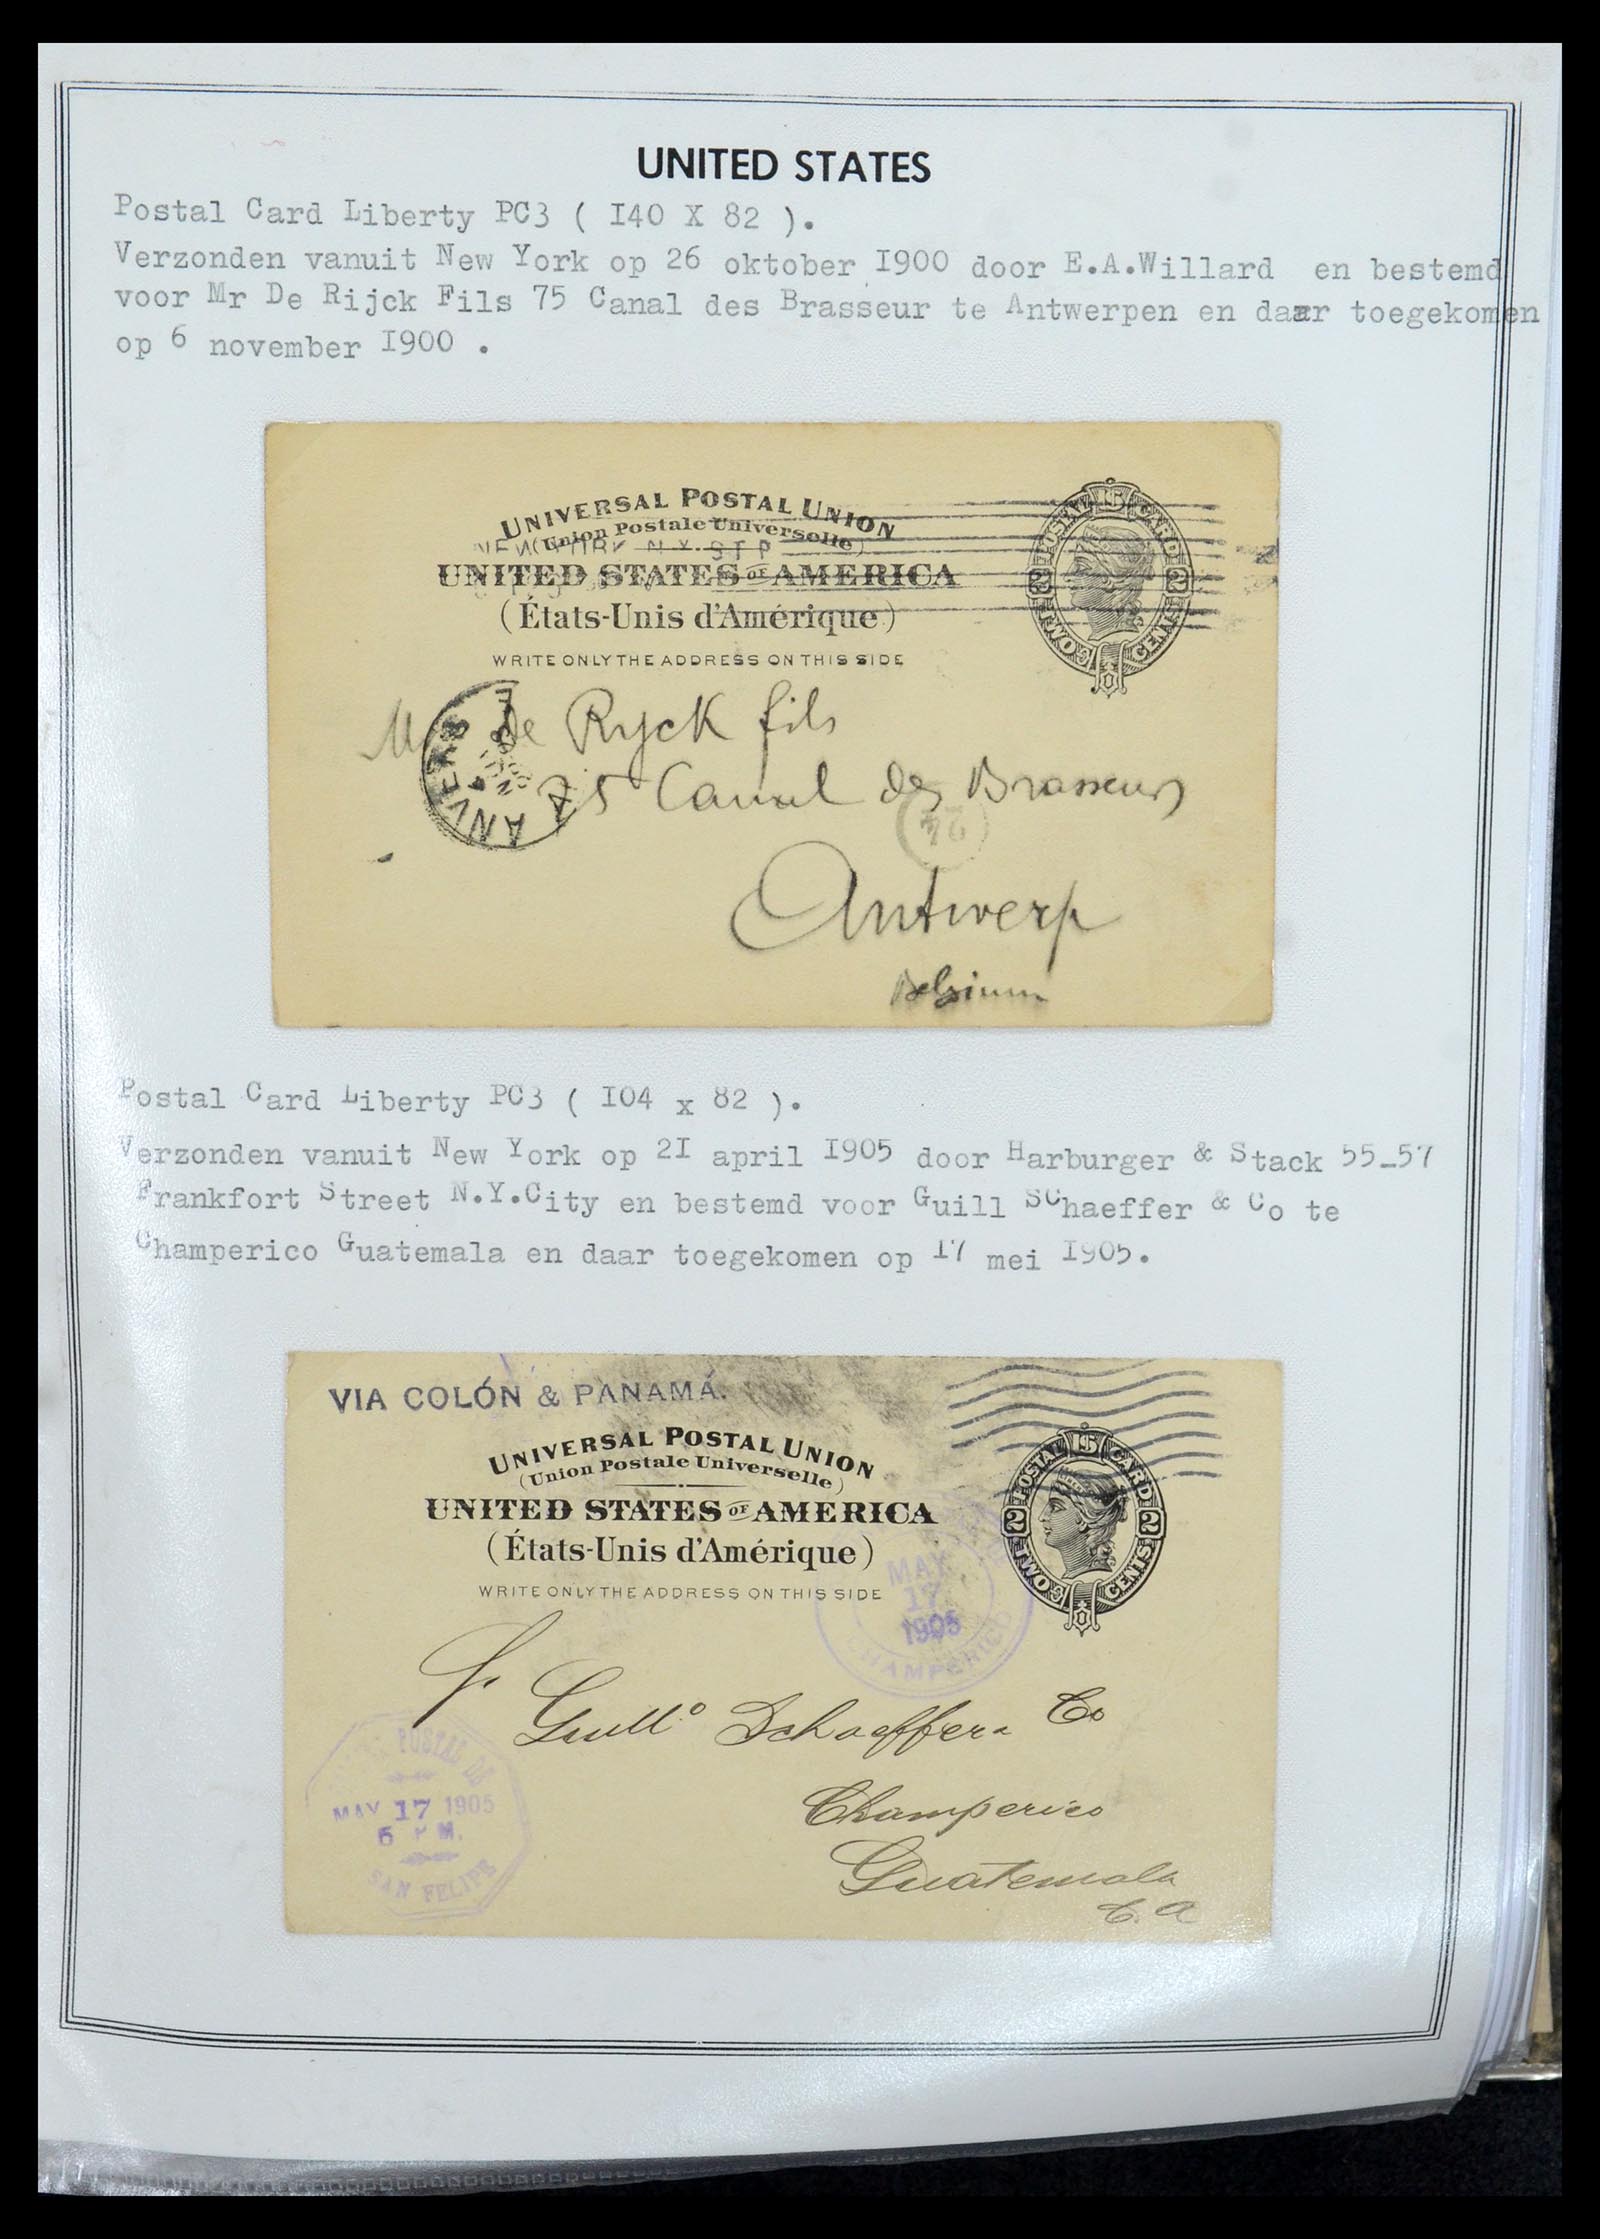 UNITED STATES
Postal Card Liberty PC3 ( I40 X 82 ).
Verzonden vanuit New York op 26 oktober I900 door E.A.Willard en bestemd
voor Mr De Rijck Fils 75 Canal des Brasseur te Antwerpen en daar toegekomen
op 6 november I900 .
UNIVERSAL POSTAL UNION
(Union Postale Universelle)
NEW YORK N.Y. STA
UNITED STATES OF AMERICA
(États-Unis d'Amérique)
WRITE ONLY THE ADDRESS ON THIS SIDE
POSTAL CARD
2 2
TWO CENTS
ANVERS
Mr De Ryck fils
75 Canal des Brasseurs
24
Antwerp
Belgium
Postal Card Liberty PC3 ( I04 x 82 ).
Verzonden vanuit New York op 2I april I905 door Harburger & Stack 55-57
Frankfort Street N.Y.City en bestemd voor Guill SChaeffer & Co te
Champerico Guatemala en daar toegekomen op I7 mei I905.
VIA COLÓN & PANAMÁ.
UNIVERSAL POSTAL UNION
(Union Postale Universelle)
UNITED STATES OF AMERICA
(États-Unis d'Amérique)
WRITE ONLY THE ADDRESS ON THIS SIDE
POSTAL CARD
2 2
TWO CENTS
MAY
17
1905
CHAMPERICO
Guillo Schaeffer & Co
Champerico
Guatemala
C. A
POSTAL DE
MAY 17 1905
5 P M.
SAN FELIPE